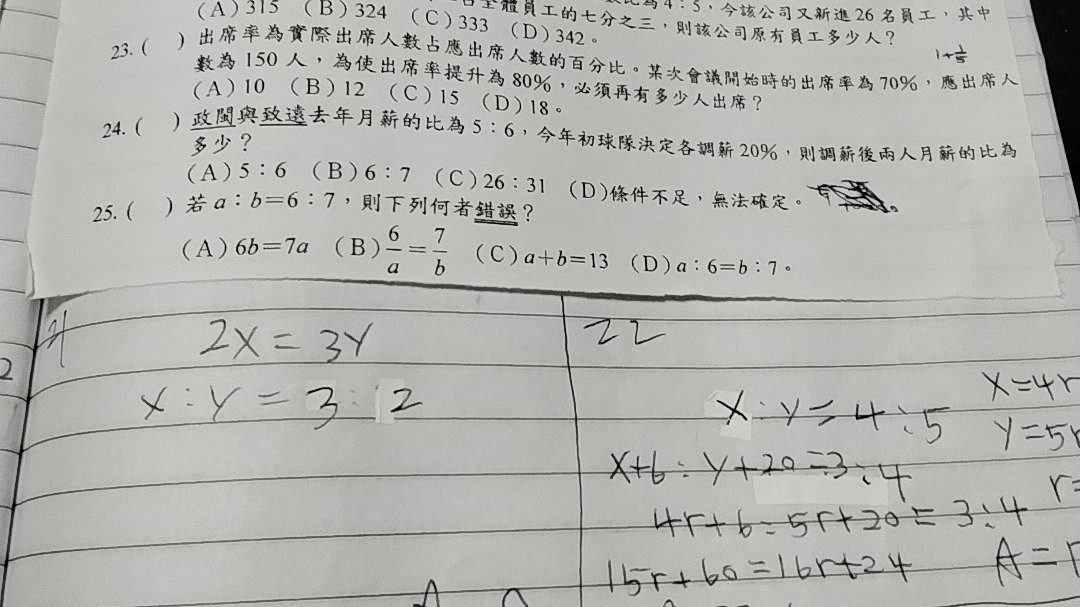 比為4：5，今該公司又新進26名員工，其中
全體員工的七分之三，則該公司原有員工多少人？
(A)315 (B)324 (C)333 (D)342。
23.( ) 出席率為實際出席人數占應出席人數的百分比。某次會議開始時的出席率為70%，應出席人
數為150人，為使出席率提升為80%，必須再有多少人出席？
(A)10 (B)12 (C)15 (D)18。
24.( ) 政閩與致遠去年月薪的比為5：6，今年初球隊決定各調薪20%，則調薪後兩人月薪的比為
多少？
(A)5：6 (B)6：7 (C)26：31 (D)條件不足，無法確定。
25.( ) 若a：b=6：7，則下列何者錯誤？
(A)6b=7a (B)6/a=7/b (C)a+b=13 (D)a：6=b：7。
2X=3Y
X:Y=3:2
22
X:Y=4:5
X=4r
Y=5r
X+6:Y+20=3:4
r=
4r+6:5r+20=3:4
15r+60=16r+24
A=